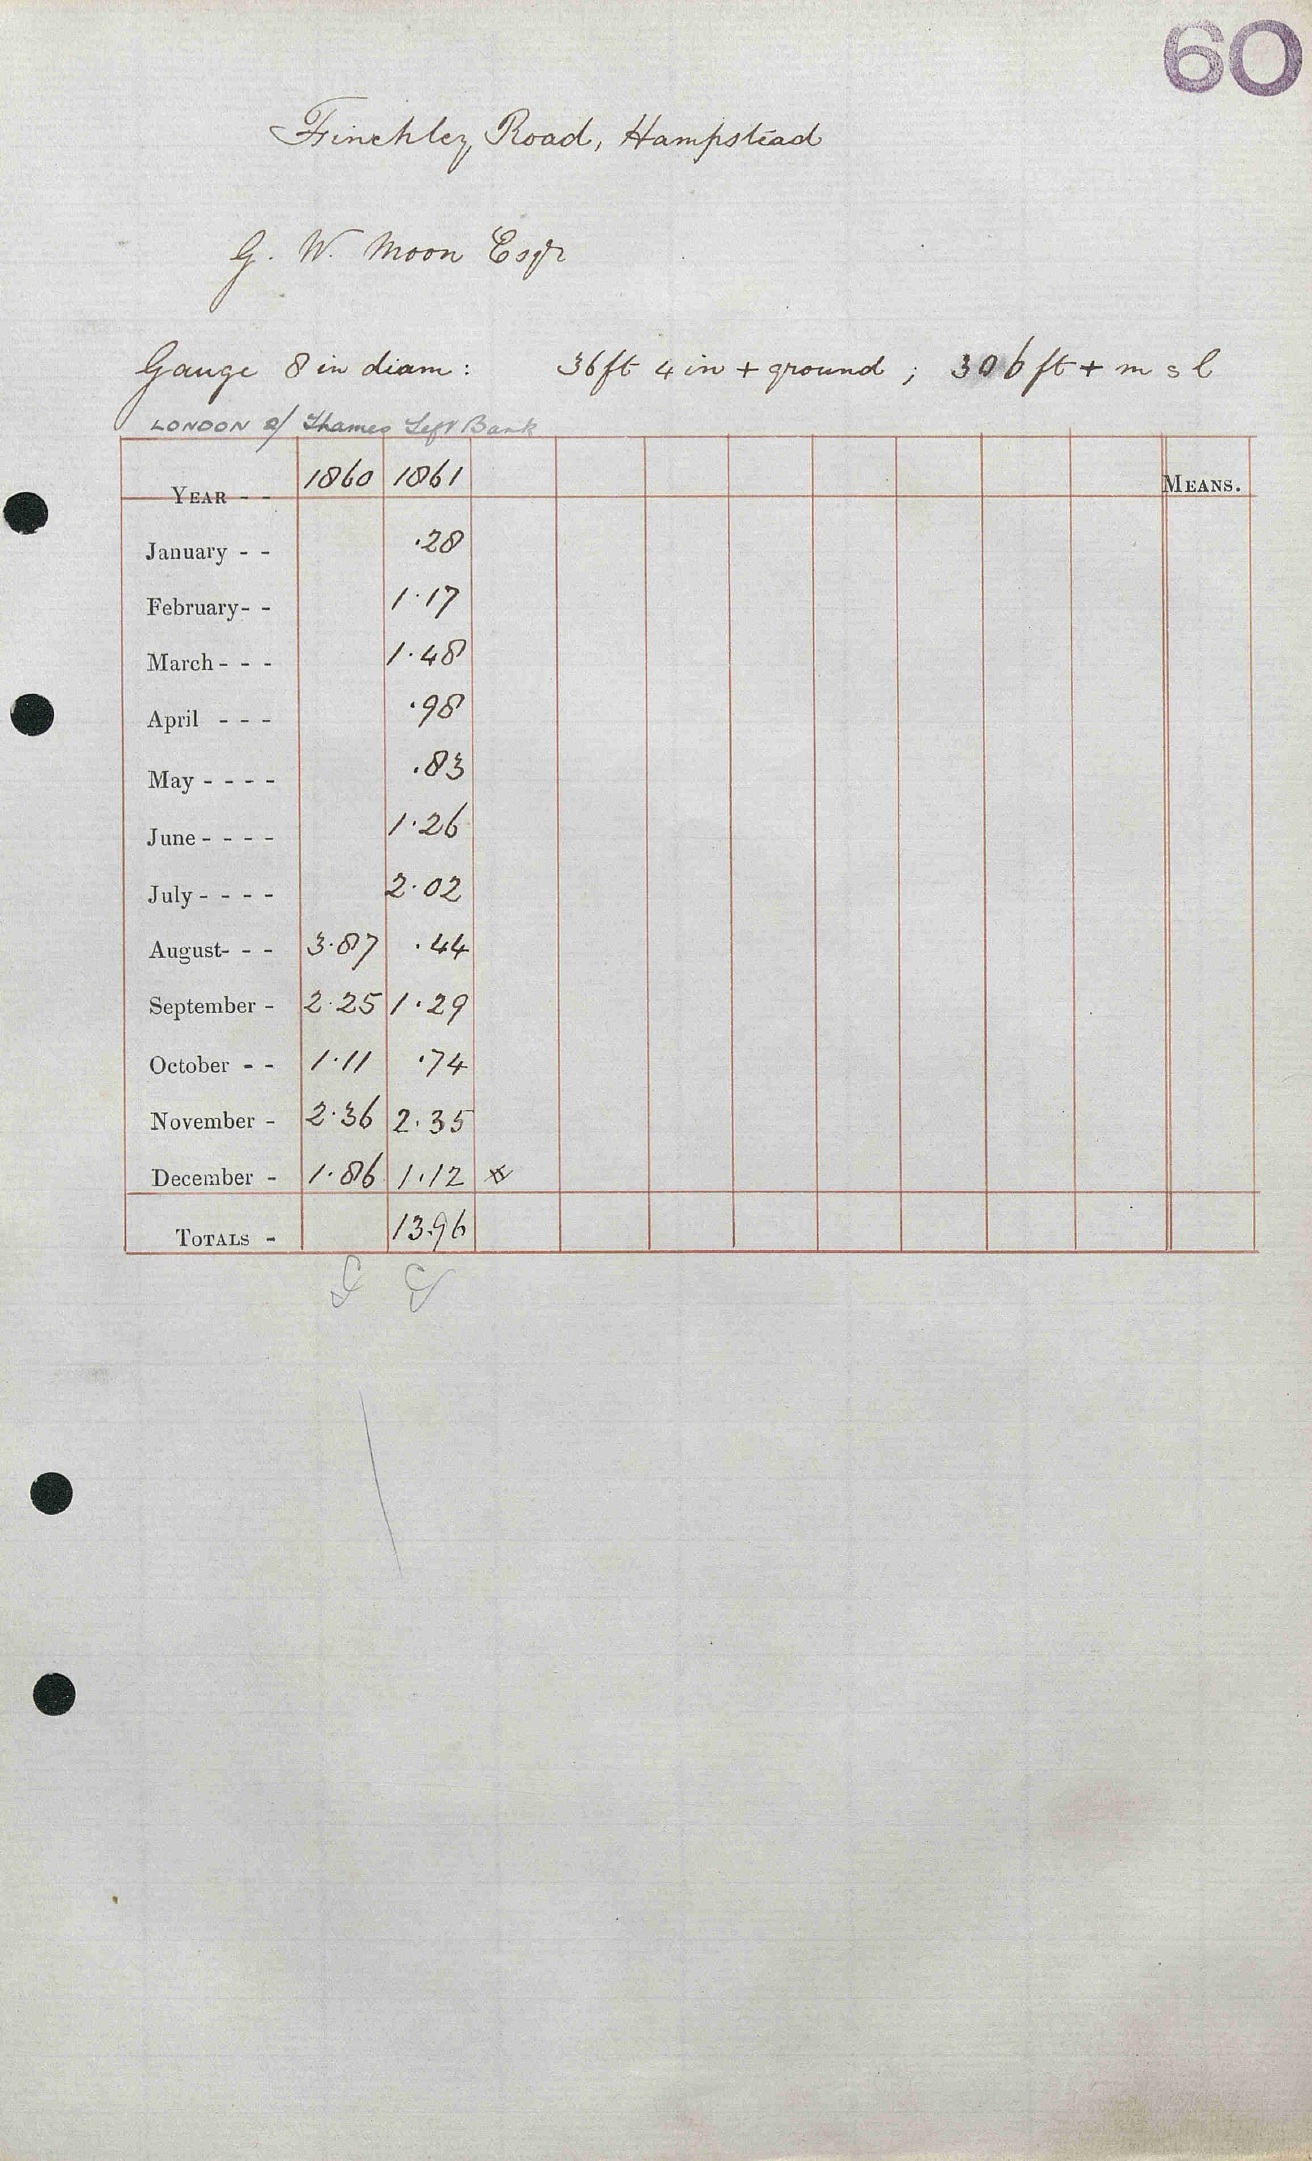 60
Finchley Road, Hampstead
G. W. Moon Esqr
Gauge 8 in diam: 36ft 4 in + ground ; 306 ft + m s l
LONDON 2/ Thames Left Bank
YEAR - - 1860 1861 MEANS.
January - - .28
February- - 1.17
March - - - 1.48
April - - - .98
May - - - - .83
June - - - - 1.26
July - - - - 2.02
August- - - 3.87 .44
September - 2.25 1.29
October - - 1.11 .74
November - 2.36 2.35
December - 1.86 1.12
TOTALS - 13.96